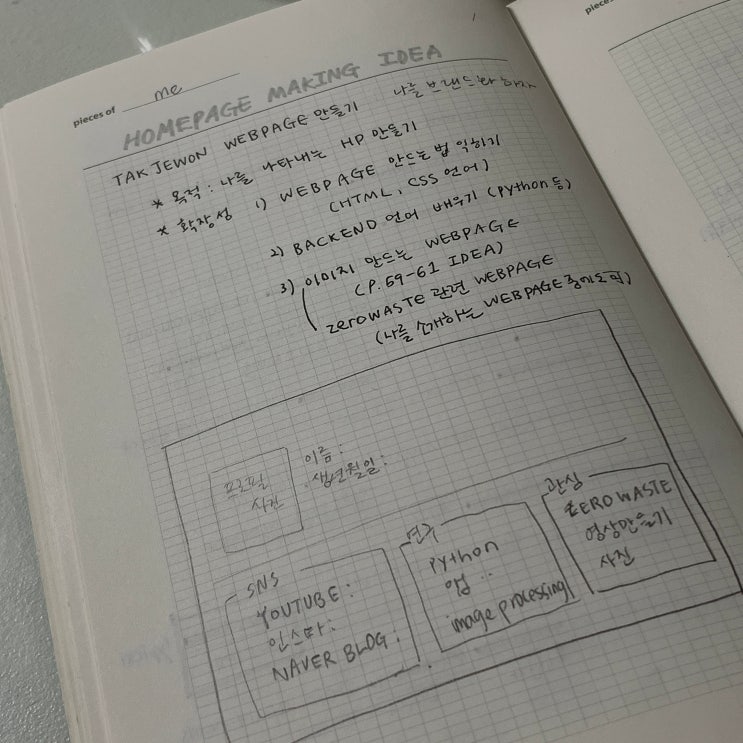 pieces of me
HOMEPAGE MAKING IDEA
TAK JEWON WEBPAGE 만들기 나를 브랜드화 하자
* 목적 : 나를 나타내는 HP 만들기
* 확장성 1) WEBPAGE 만드는 법 익히기
(HTML, CSS 언어)
2) BACKEND 언어 배우기 (Python 등)
3) 이미지 만드는 WEBPAGE
(P.59-61 IDEA)
zeroWASTE 관련 WEBPAGE
(나를 소개하는 WEBPAGE 중에도 픽)
프로필
사진
이름 :
생년월일 :
SNS
YOUTUBE :
인스타 :
NAVER BLOG :
연구
Python
앱 ..
image processing
관심
ZERO WASTE
영상만들기
사진
pieces